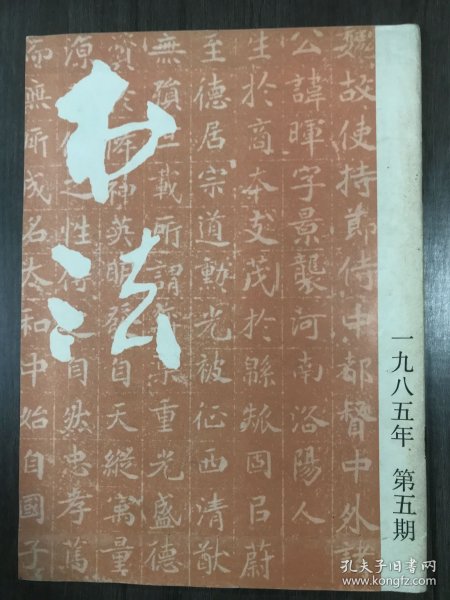 书法
一九八五年 第五期
魏故使持節侍中都督中外諸
公諱暉字景襲河南洛陽人
生於商本支茂於緜瓞固㠯蔚
至德居宗道勳光被征西清猷
無隕世載所謂重光盛德
降神英明自天縱萬量
源之性得之自然忠孝篤
而無所成名太和中始自國子
孔夫子旧书网
www.kongfz.com